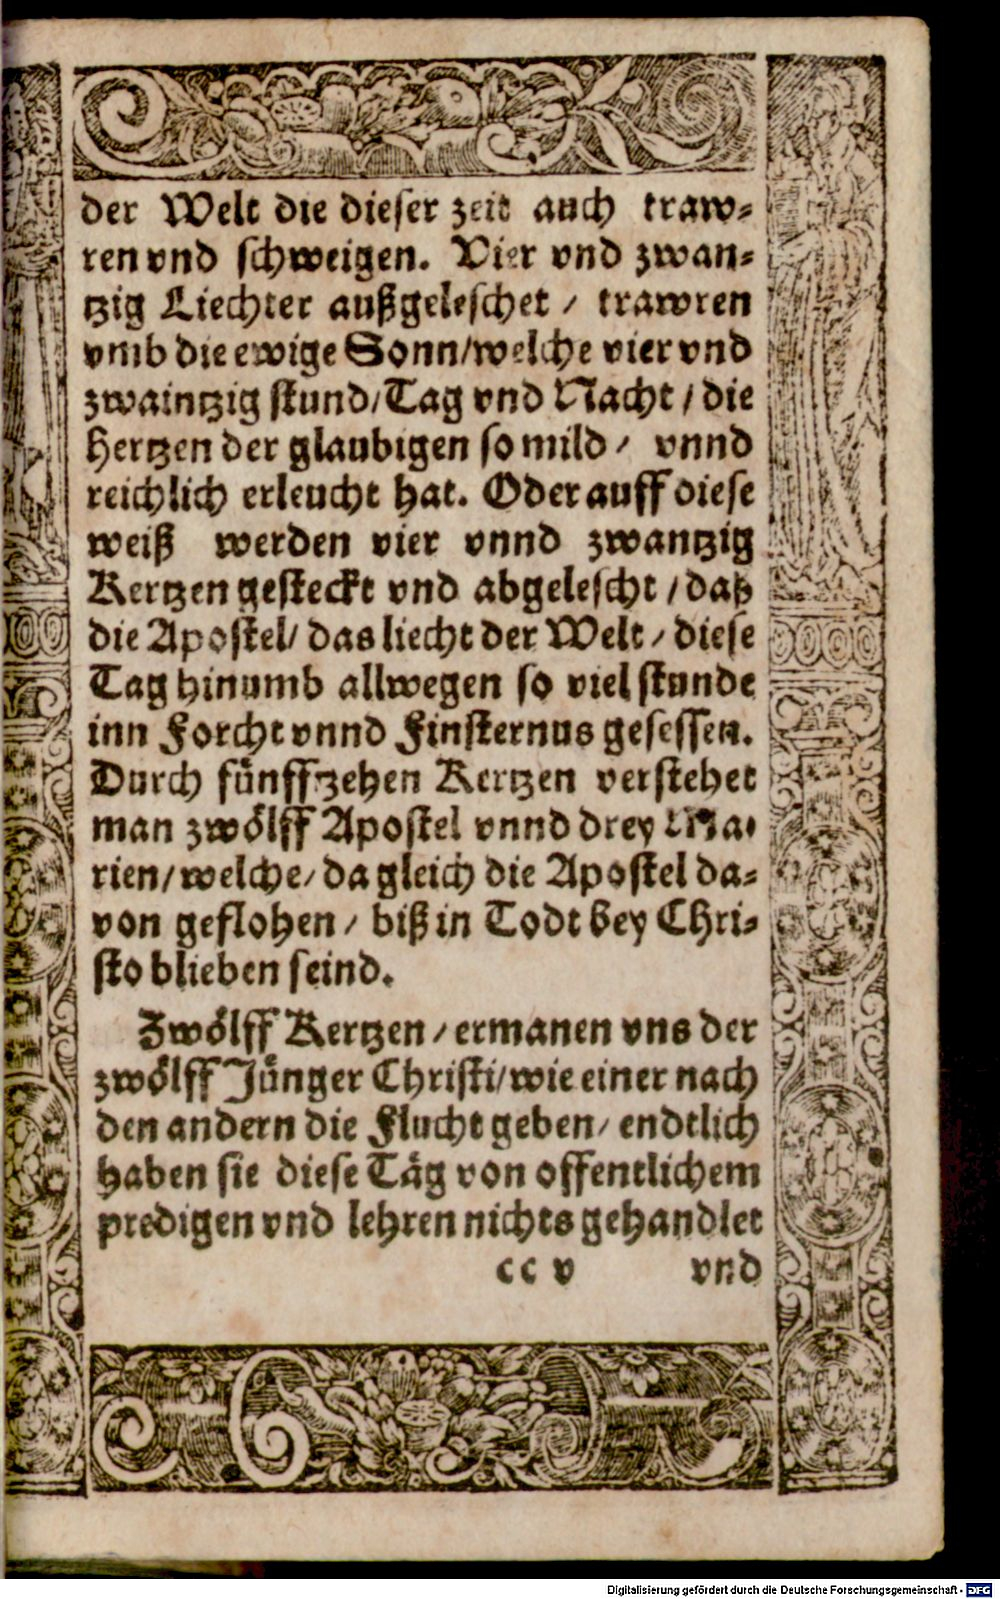 der Welt die dieser zeit auch traw⸗
ren vnd schweigen. Vier vnd zwan⸗
tzig Liechter außgeleschet / trawren
vmb die ewige Sonn/welche vier vnd
zwaintzig stund/Tag vnd Nacht / die
Hertzen der glaubigen so mild / vnnd
reichlich erleucht hat. Oder auff diese
weiß werden vier vnnd zwantzig
Kertzen gesteckt vnd abgelescht / daß
die Apostel/ das liecht der Welt / diese
Tag hinumb allwegen so viel stunde
inn Forcht vnnd Finsternus gesessen.
Durch fünfftzehen Kertzen verstehet
man zwölff Apostel vnnd drey Ma⸗
rien/welche/da gleich die Apostel da⸗
von geflohen / biß in Todt bey Chri⸗
sto blieben seind.
Zwölff Kertzen / ermanen vns der
zwölff Jünger Christi/wie einer nach
den andern die Flucht geben/ endtlich
haben sie diese Täg von offentlichem
predigen vnd lehren nichts gehandlet
cc v vnd
Digitalisierung gefördert durch die Deutsche Forschungsgemeinschaft - DFG